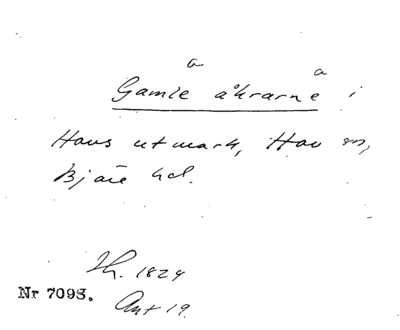 a a
Gamle åkrarne i
Havs utmark, Hov sn,
Bjäre hd.
Lh. 1824
Nr 7098. Ant 19.